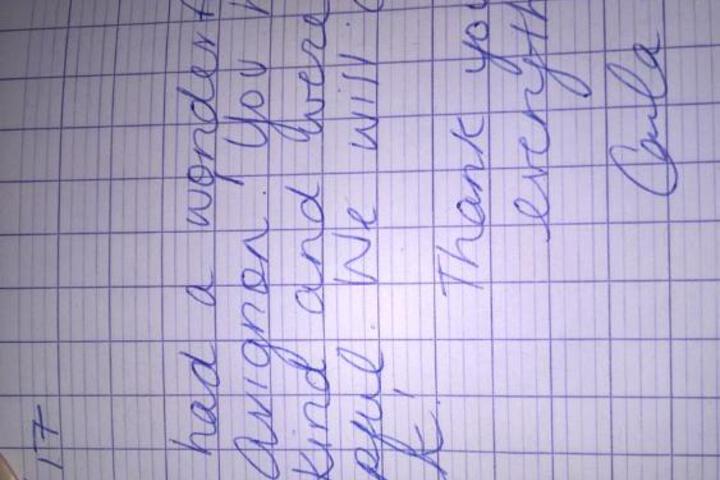 17
had a wonderf
Avignon. You
kind and were
pful. We will
k.
Thank you
everyth
Carla